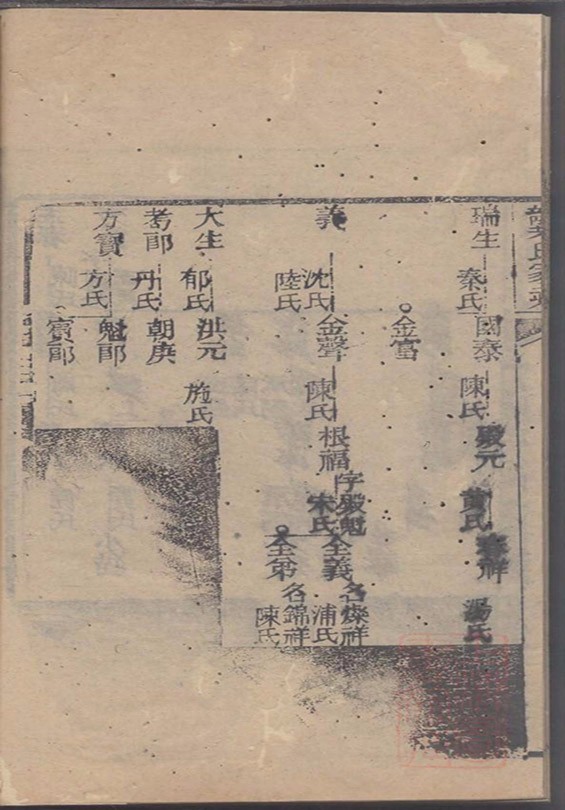 瑞生
秦氏
國泰
陳氏
殿元
黃氏
祥
湯氏
金富
義
沈氏
陸氏
金聲
陳氏
根福
字殿魁
宋氏
全義
名燦祥
浦氏
全弟
名錦祥
陳氏
大生
郁氏
洪元
施氏
考郎
丹氏
朝庚
方寶
方氏
魁郎
寶郎